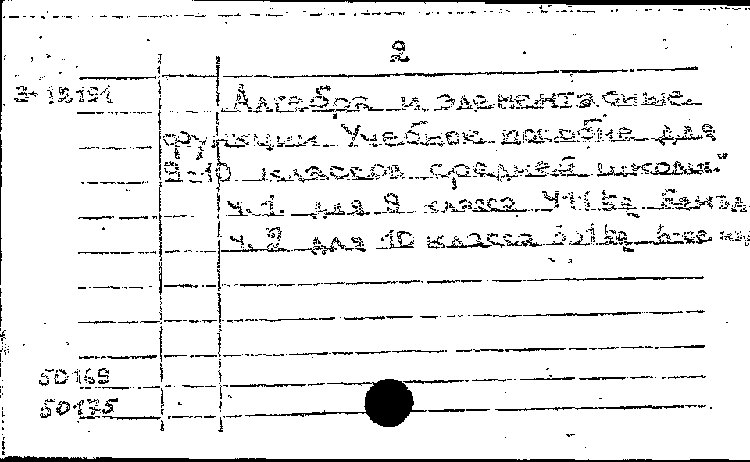 2
3-12191
Алгебра и элементарные
функции Учебное пособие для
9-10 классов средней школы."
ч.1. для 9 класса
ч. 2 для 10 класса
50169
50175